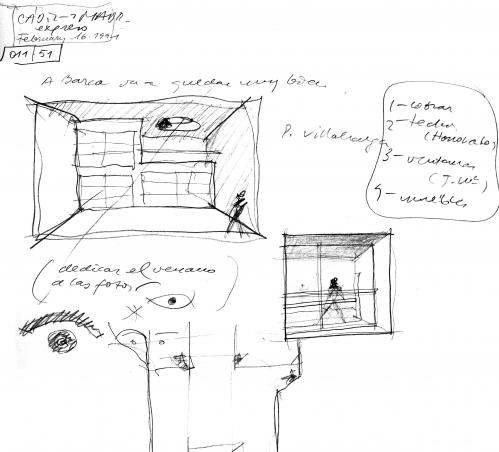 CADIZ-MADR.
expreso
February 16. 1991
011/51
A Barca va a quedar muy bien
P. Villalonga
1-cobrar
2-techo
(Honorato)
3-ventanas
4-muebles
(dedicar el verano
a las fotos)